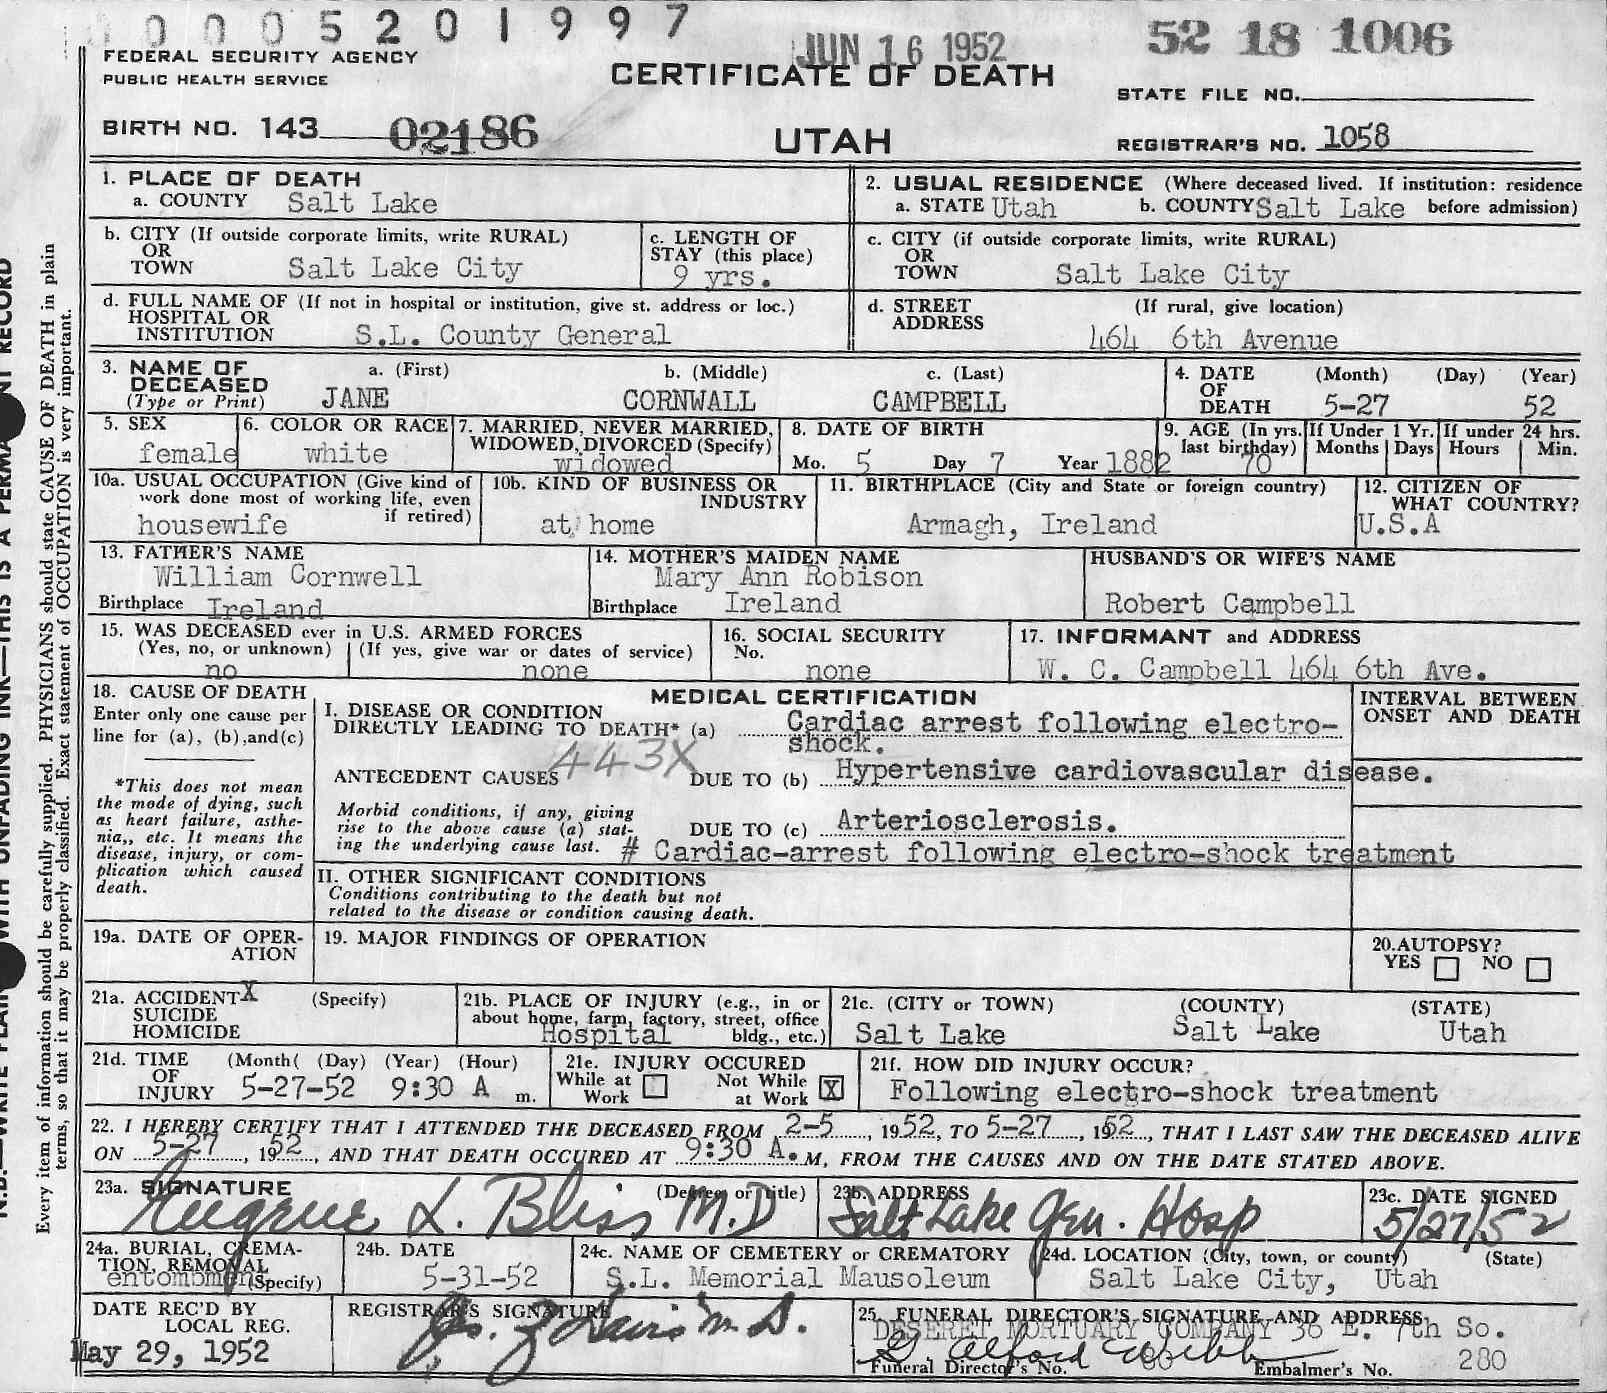 0005201997
JUN 16 1952
52 18 1006
FEDERAL SECURITY AGENCY
PUBLIC HEALTH SERVICE
CERTIFICATE OF DEATH
STATE FILE NO.
BIRTH NO. 143 02186
UTAH
REGISTRAR'S NO. 1058
1. PLACE OF DEATH
a. COUNTY Salt Lake
2. USUAL RESIDENCE (Where deceased lived. If institution: residence
a. STATE Utah b. COUNTY Salt Lake before admission)
b. CITY (If outside corporate limits, write RURAL)
OR
TOWN Salt Lake City
c. LENGTH OF
STAY (this place)
9 yrs.
c. CITY (if outside corporate limits, write RURAL)
OR
TOWN Salt Lake City
d. FULL NAME OF (If not in hospital or institution, give st. address or loc.)
HOSPITAL OR
INSTITUTION S.L. County General
d. STREET (If rural, give location)
ADDRESS
464 6th Avenue
3. NAME OF
DECEASED
(Type or Print)
a. (First) b. (Middle) c. (Last)
JANE CORNWALL CAMPBELL
4. DATE (Month) (Day) (Year)
OF
DEATH 5-27 52
5. SEX
female
6. COLOR OR RACE
white
7. MARRIED, NEVER MARRIED,
WIDOWED, DIVORCED (Specify)
widowed
8. DATE OF BIRTH
Mo. 5 Day 7 Year 1882
9. AGE (In yrs.
last birthday)
70
If Under 1 Yr.
Months Days
If under 24 hrs.
Hours Min.
10a. USUAL OCCUPATION (Give kind of
work done most of working life, even
if retired)
housewife
10b. KIND OF BUSINESS OR
INDUSTRY
at home
11. BIRTHPLACE (City and State or foreign country)
Armagh, Ireland
12. CITIZEN OF
WHAT COUNTRY?
U.S.A
13. FATHER'S NAME
William Cornwell
Birthplace Ireland
14. MOTHER'S MAIDEN NAME
Mary Ann Robison
Birthplace Ireland
HUSBAND'S OR WIFE'S NAME
Robert Campbell
15. WAS DECEASED ever in U.S. ARMED FORCES
(Yes, no, or unknown) (If yes, give war or dates of service)
no none
16. SOCIAL SECURITY
No.
none
17. INFORMANT and ADDRESS
W. C. Campbell 464 6th Ave.
18. CAUSE OF DEATH
Enter only one cause per
line for (a), (b), and (c)
*This does not mean
the mode of dying, such
as heart failure, asthe-
nia,, etc. It means the
disease, injury, or com-
plication which caused
death.
MEDICAL CERTIFICATION
I. DISEASE OR CONDITION
DIRECTLY LEADING TO DEATH* (a) Cardiac arrest following electro-
shock.
443X
ANTECEDENT CAUSES DUE TO (b) Hypertensive cardiovascular disease.
Morbid conditions, if any, giving
rise to the above cause (a) stat-
ing the underlying cause last.
DUE TO (c) Arteriosclerosis.
# Cardiac-arrest following electro-shock treatment
INTERVAL BETWEEN
ONSET AND DEATH
II. OTHER SIGNIFICANT CONDITIONS
Conditions contributing to the death but not
related to the disease or condition causing death.
19a. DATE OF OPER-
ATION
19. MAJOR FINDINGS OF OPERATION
20. AUTOPSY?
YES NO
21a. ACCIDENT X (Specify)
SUICIDE
HOMICIDE
21b. PLACE OF INJURY (e.g., in or
about home, farm, factory, street, office
bldg., etc.)
Hospital
21c. (CITY or TOWN) (COUNTY) (STATE)
Salt Lake Salt Lake Utah
21d. TIME (Month( (Day) (Year) (Hour)
OF
INJURY 5-27-52 9:30 A m.
21e. INJURY OCCURED
While at Work Not While at Work X
21f. HOW DID INJURY OCCUR?
Following electro-shock treatment
22. I HEREBY CERTIFY THAT I ATTENDED THE DECEASED FROM 2-5, 1952, TO 5-27, 1952, THAT I LAST SAW THE DECEASED ALIVE
ON 5-27, 1952, AND THAT DEATH OCCURED AT 9:30 A.M, FROM THE CAUSES AND ON THE DATE STATED ABOVE.
23a. SIGNATURE (Degree or title)
Eugene L. Bliss M.D
23b. ADDRESS
Salt Lake Gen. Hosp
23c. DATE SIGNED
5/27/52
24a. BURIAL, CREMA-
TION, REMOVAL
(Specify)
entombment
24b. DATE
5-31-52
24c. NAME OF CEMETERY or CREMATORY
S.L. Memorial Mausoleum
24d. LOCATION (City, town, or county) (State)
Salt Lake City, Utah
DATE REC'D BY
LOCAL REG.
May 29, 1952
REGISTRAR'S SIGNATURE
25. FUNERAL DIRECTOR'S SIGNATURE AND ADDRESS
DESERET MORTUARY COMPANY 36 E. 7th So.
Funeral Director's No. Embalmer's No. 280
Every item of information should be carefully supplied. PHYSICIANS should state CAUSE OF DEATH in plain
terms, so that it may be properly classified. Exact statement of OCCUPATION is very important.